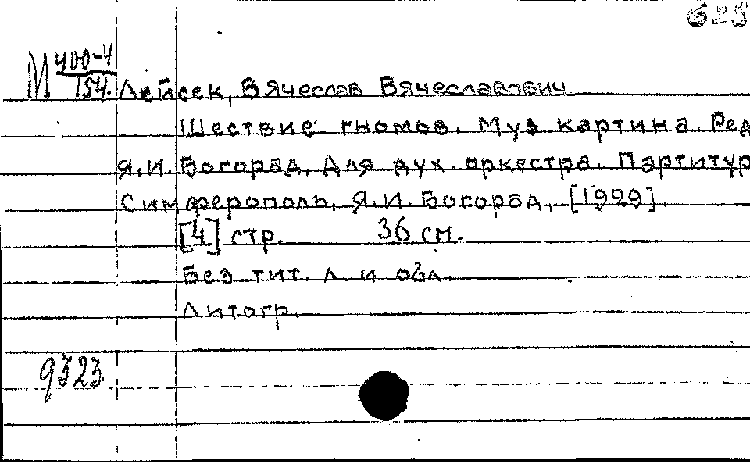 623
М 400-4
154. Лейсек, Вячеслав Вячеславович
Шествие гномов. Муз картина. Ред
Я.И. Богорад. Для дух. оркестра. Партитур
Симферополь, Я.И. Богорад, [1929].
[4] стр. 36 см.
Без тит. л. и обл.
Литогр.
9323.